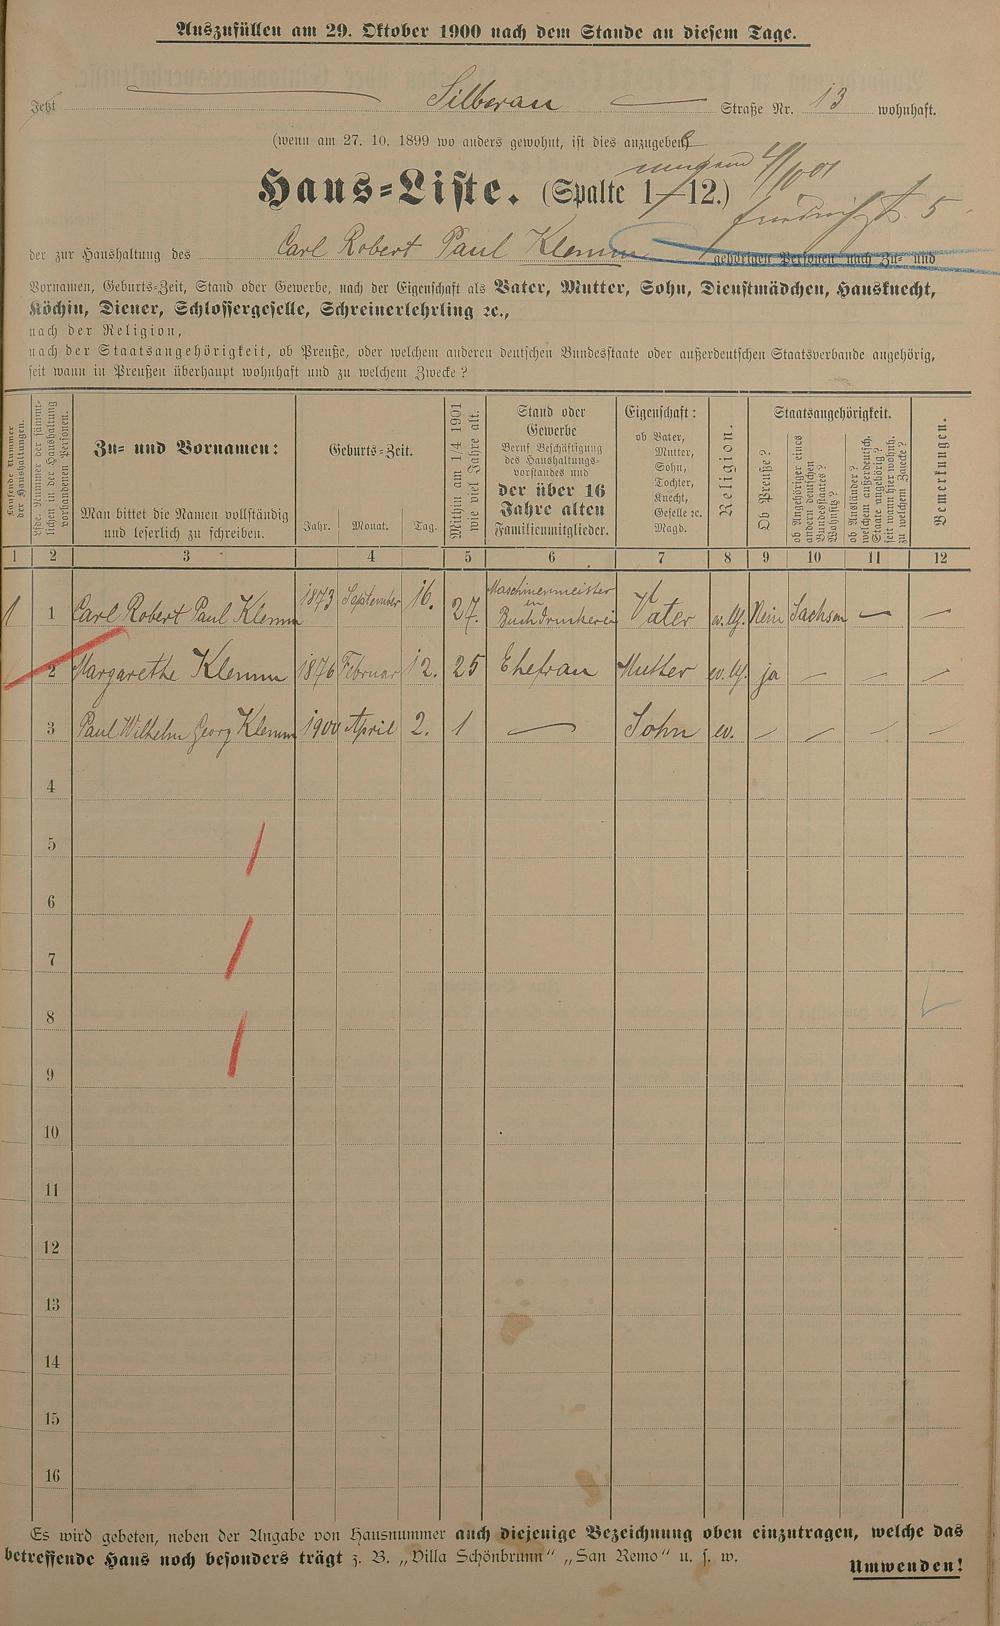 Auszufüllen am 29. Oktober 1900 nach dem Stande an diesem Tage.
Jetzt Silberau Straße Nr. 13 wohnhaft.
(wenn am 27. 10. 1899 wo anders gewohnt, ist dies anzugeben)
4/10 01
Haus-Liste. (Spalte 1—12.)
5
der zur Haushaltung des Carl Robert Paul Klemm gehörigen Personen nach Zu- und
Vornamen, Geburts-Zeit, Stand oder Gewerbe, nach der Eigenschaft als Vater, Mutter, Sohn, Dienstmädchen, Hausknecht,
Köchin, Diener, Schlossergeselle, Schreinerlehrling ꝛc.,
nach der Religion,
nach der Staatsangehörigkeit, ob Preuße, oder welchem anderen deutschen Bundesstaate oder außerdeutschen Staatsverbande angehörig,
seit wann in Preußen überhaupt wohnhaft und zu welchem Zwecke?
Laufende Nummer der Haushaltungen.
Lfde. Nummer der sämmtlichen in der Haushaltung vorhandenen Personen.
Zu- und Vornamen:
Man bittet die Namen vollständig
und leserlich zu schreiben.
Geburts-Zeit.
Jahr. Monat. Tag.
Mithin am 1/4 1901 wie viel Jahre alt.
Stand oder
Gewerbe
Beruf Beschäftigung
des Haushaltungs-
vorstandes und
der über 16
Jahre alten
Familienmitglieder.
Eigenschaft:
ob Vater,
Mutter,
Sohn,
Tochter,
Knecht,
Geselle ꝛc.
Magd.
Religion.
Staatsangehörigkeit.
Ob Preuße?
ob Angehöriger eines andern deutschen Bundesstaates? Wohnsitz?
ob Ausländer? welchem außerdeutsch. Staate angehörig? seit wann hier wohnh. zu welchem Zwecke?
Bemerkungen.
1 2 3 4 5 6 7 8 9 10 11 12
1 1 Carl Robert Paul Klemm 1873 September 16. 27. Maschinenmeister in Buchdruckerei Vater Nein Sachsen — —
2 Margarethe Klemm 1876 Februar 12. 25 Ehefrau Mutter ja — — —
3 Paul Wilhelm Georg Klemm 1900 April 2. 1 — Sohn ev. — — — —
4
5
6
7
8
9
10
11
12
13
14
15
16
Es wird gebeten, neben der Angabe von Hausnummer auch diejenige Bezeichnung oben einzutragen, welche das
betreffende Haus noch besonders trägt z. B. „Villa Schönbrunn“ „San Remo“ u. s. w.
Umwenden!